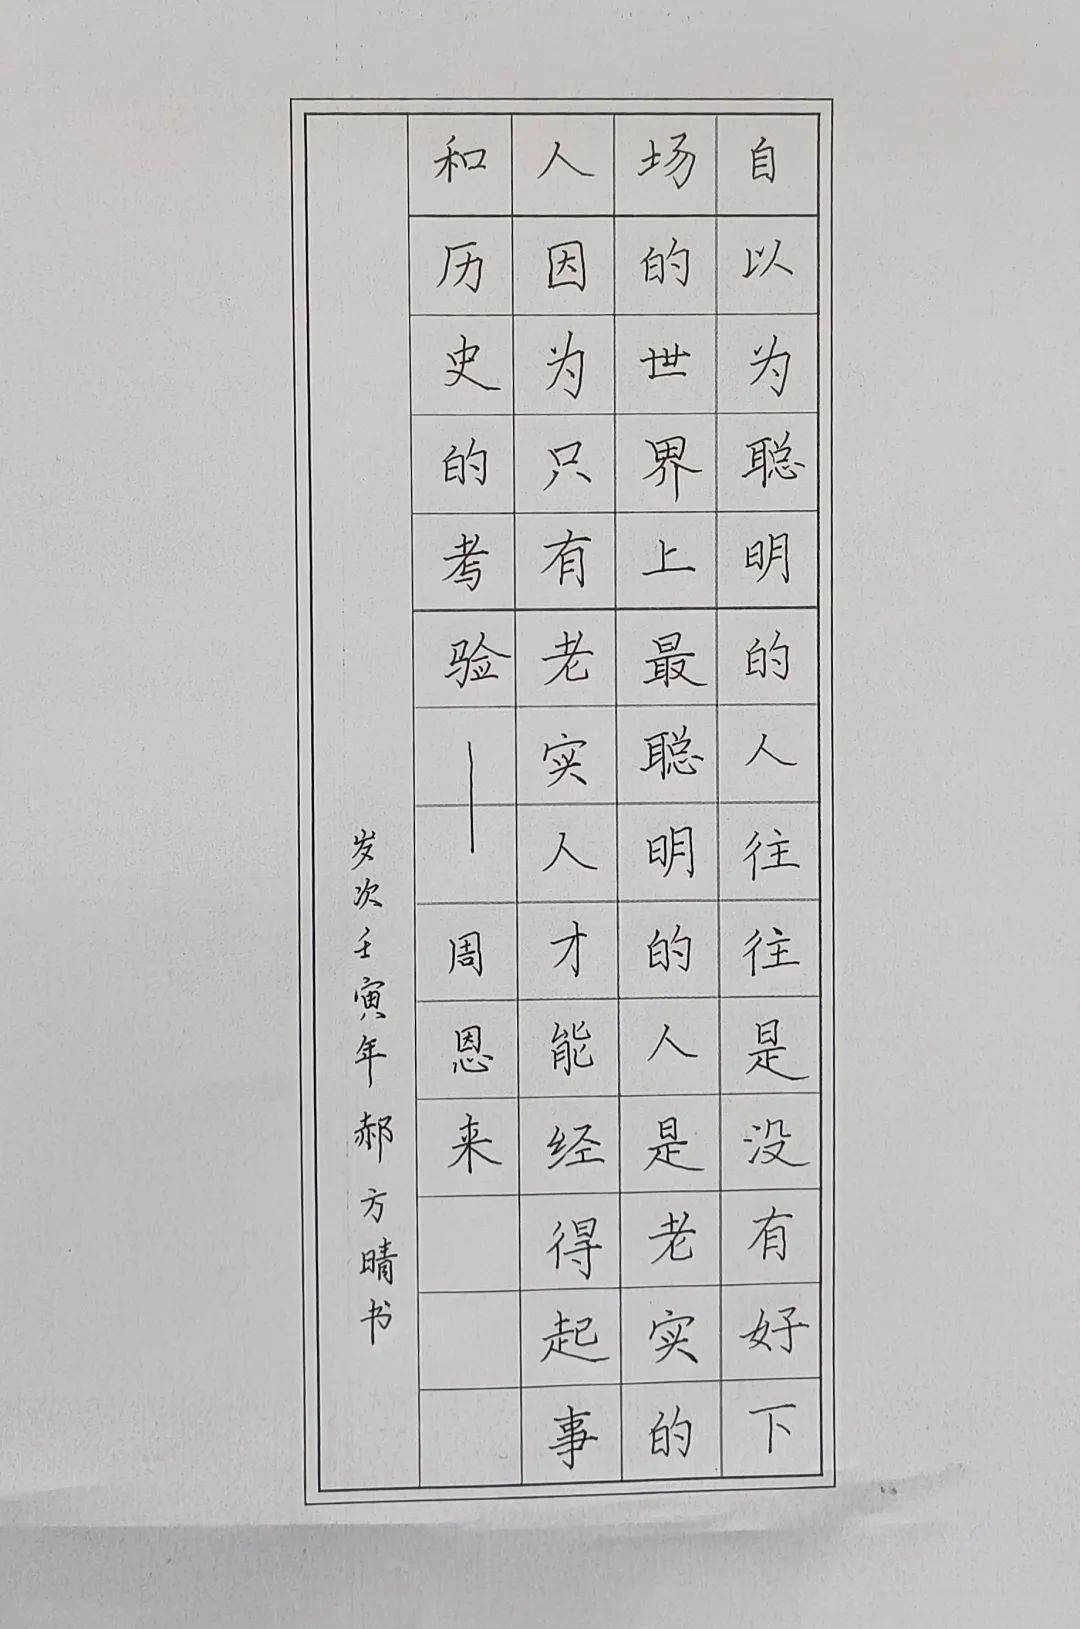 自以为聪明的人往往是没有好下
场的世界上最聪明的人是老实的
人因为只有老实人才能经得起事
和历史的考验——周恩来
岁次壬寅年郝方晴书